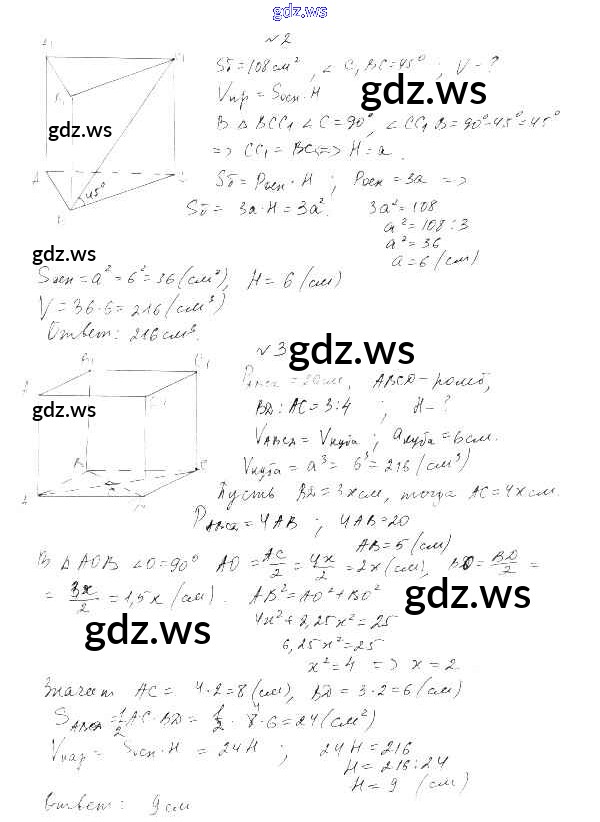 gdz.ws
№2
Sб=108 см², ∠C₁BC=45°; V-?
Vпр = Sосн·H
gdz.ws
gdz.ws
В ΔBCC₁ ∠C=90°, ∠CC₁B=90°-45°=45°
=> CC₁ = BC => H=a.
45°
Sб = Pосн·H; Pосн = 3a =>
Sб = 3a·H = 3a². 3a²=108
a²=108:3
a²=36
a=6 (см)
gdz.ws
Sосн=a²=6²=36 (см²), H=6 (см)
V=36·6=216 (см³)
Ответ: 216 см³.
№3
gdz.ws
ABCD-ромб,
gdz.ws
BD:AC=3:4; H-?
VABCD = Vкуба; aкуба=6см.
Vкуба = a³ = 6³=216 (см³)
Пусть BD=3x см, тогда AC=4x см.
PABCD=4AB; 4AB=20
AB=5 (см)
В ΔAOB ∠O=90° AO=AC/2=4x/2=2x (см), BO=BD/2=
=3x/2=1,5x (см). AB²=AO²+BO²
gdz.ws
gdz.ws
4x²+2,25x²=25
6,25x²=25
x²=4 => x=2
Значит AC= 4·2=8 (см), BD=3·2=6 (см)
SABCD=1/2 AC·BD=1/2·8·6=24 (см²)
Vпар= Sосн·H = 24H; 24H=216
H=216:24
H=9 (см)
Ответ: 9 см